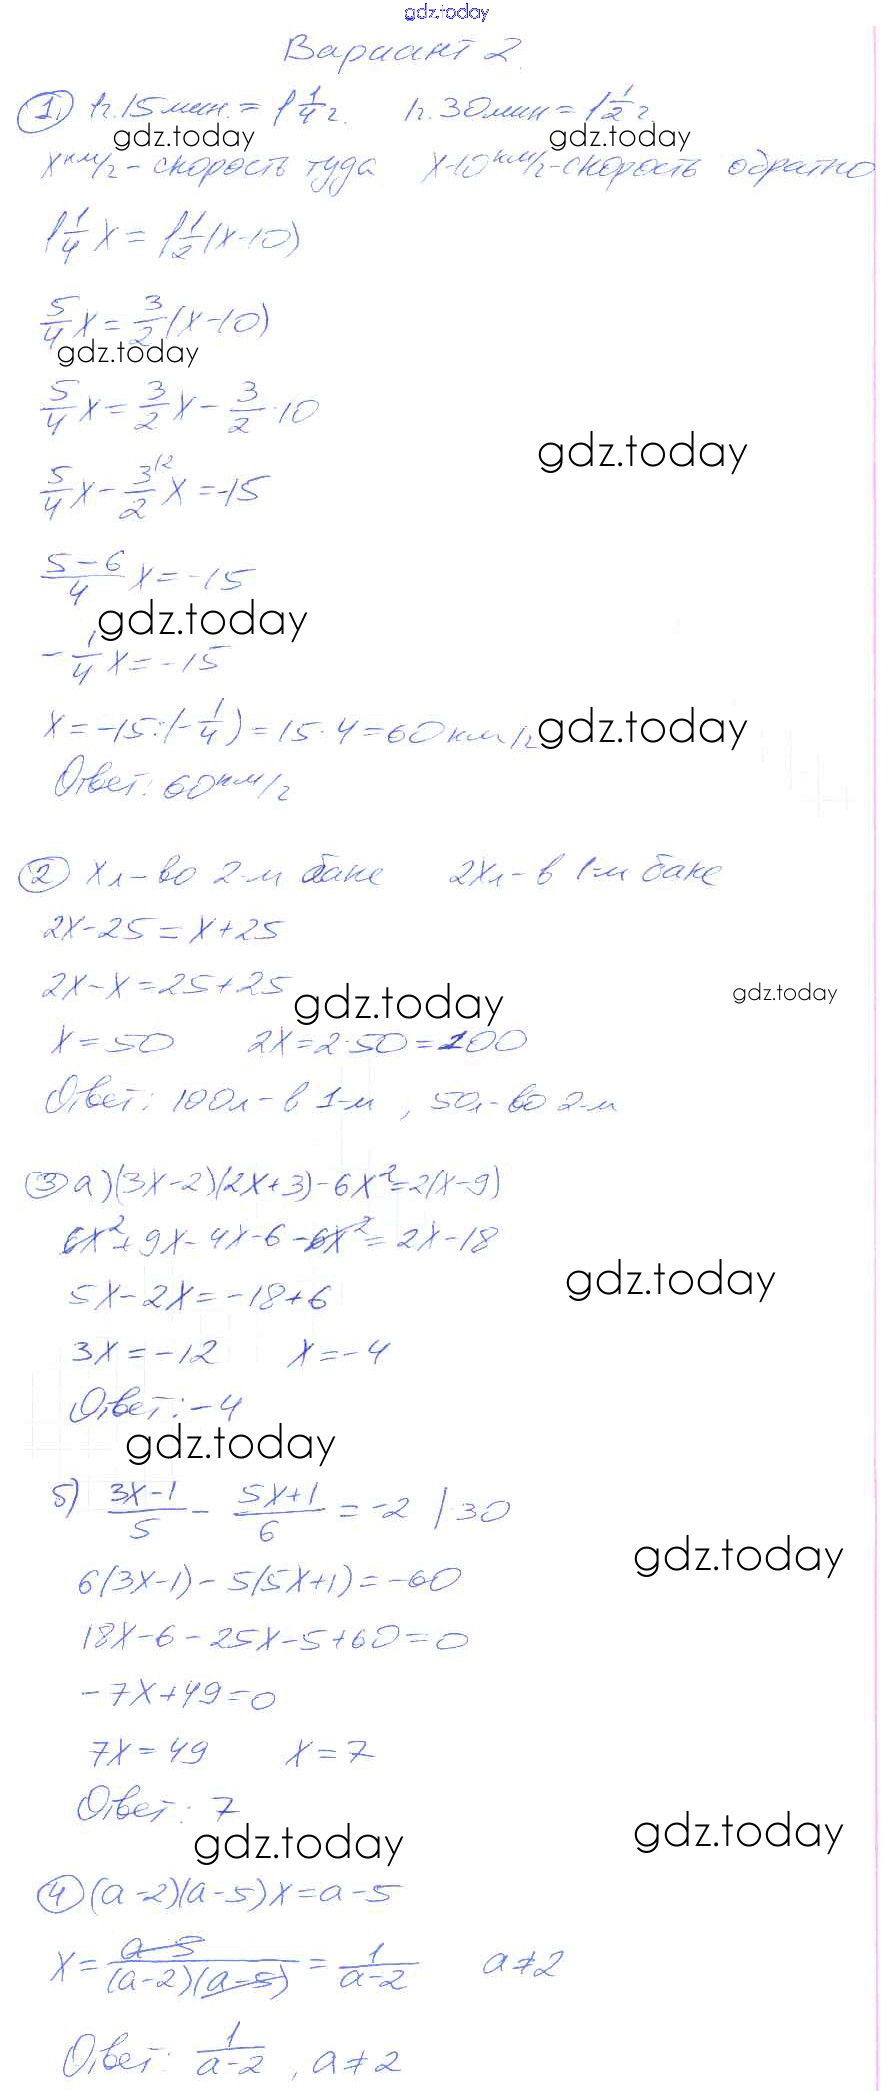 gdz.today
Вариант 2.
1) 1ч.15мин. = 1 1/4 ч. 1ч.30мин = 1 1/2 ч
gdz.today gdz.today
x км/ч - скорость туда x-10 км/ч - скорость обратно
1 1/4 x = 1 1/2 (x-10)
5/4 x = 3/2 (x-10)
gdz.today
5/4 x = 3/2 x - 3/2 · 10
gdz.today
5/4 x - 3/2 \2 x = -15
(5-6)/4 x = -15
gdz.today
- 1/4 x = -15
x = -15 : (-1/4) = 15 · 4 = 60 км/ч
gdz.today
Ответ: 60 км/ч
2) xл - во 2-м баке 2xл - в 1-м баке
2x-25 = x+25
2x-x = 25+25
gdz.today gdz.today
x = 50 2x = 2·50 = 100
Ответ: 100л - в 1-м, 50л - во 2-м
3) а) (3x-2)(2x+3) - 6x² = 2(x-9)
6x² + 9x - 4x - 6 - 6x² = 2x - 18
gdz.today
5x - 2x = -18 + 6
3x = -12 x = -4
Ответ: -4
gdz.today
б) (3x-1)/5 - (5x+1)/6 = -2 | ·30
gdz.today
6(3x-1) - 5(5x+1) = -60
18x - 6 - 25x - 5 + 60 = 0
-7x + 49 = 0
7x = 49 x = 7
Ответ: 7
gdz.today gdz.today
4) (a-2)(a-5)x = a-5
x = (a-5)/((a-2)(a-5)) = 1/(a-2) a ≠ 2
Ответ: 1/(a-2), a ≠ 2